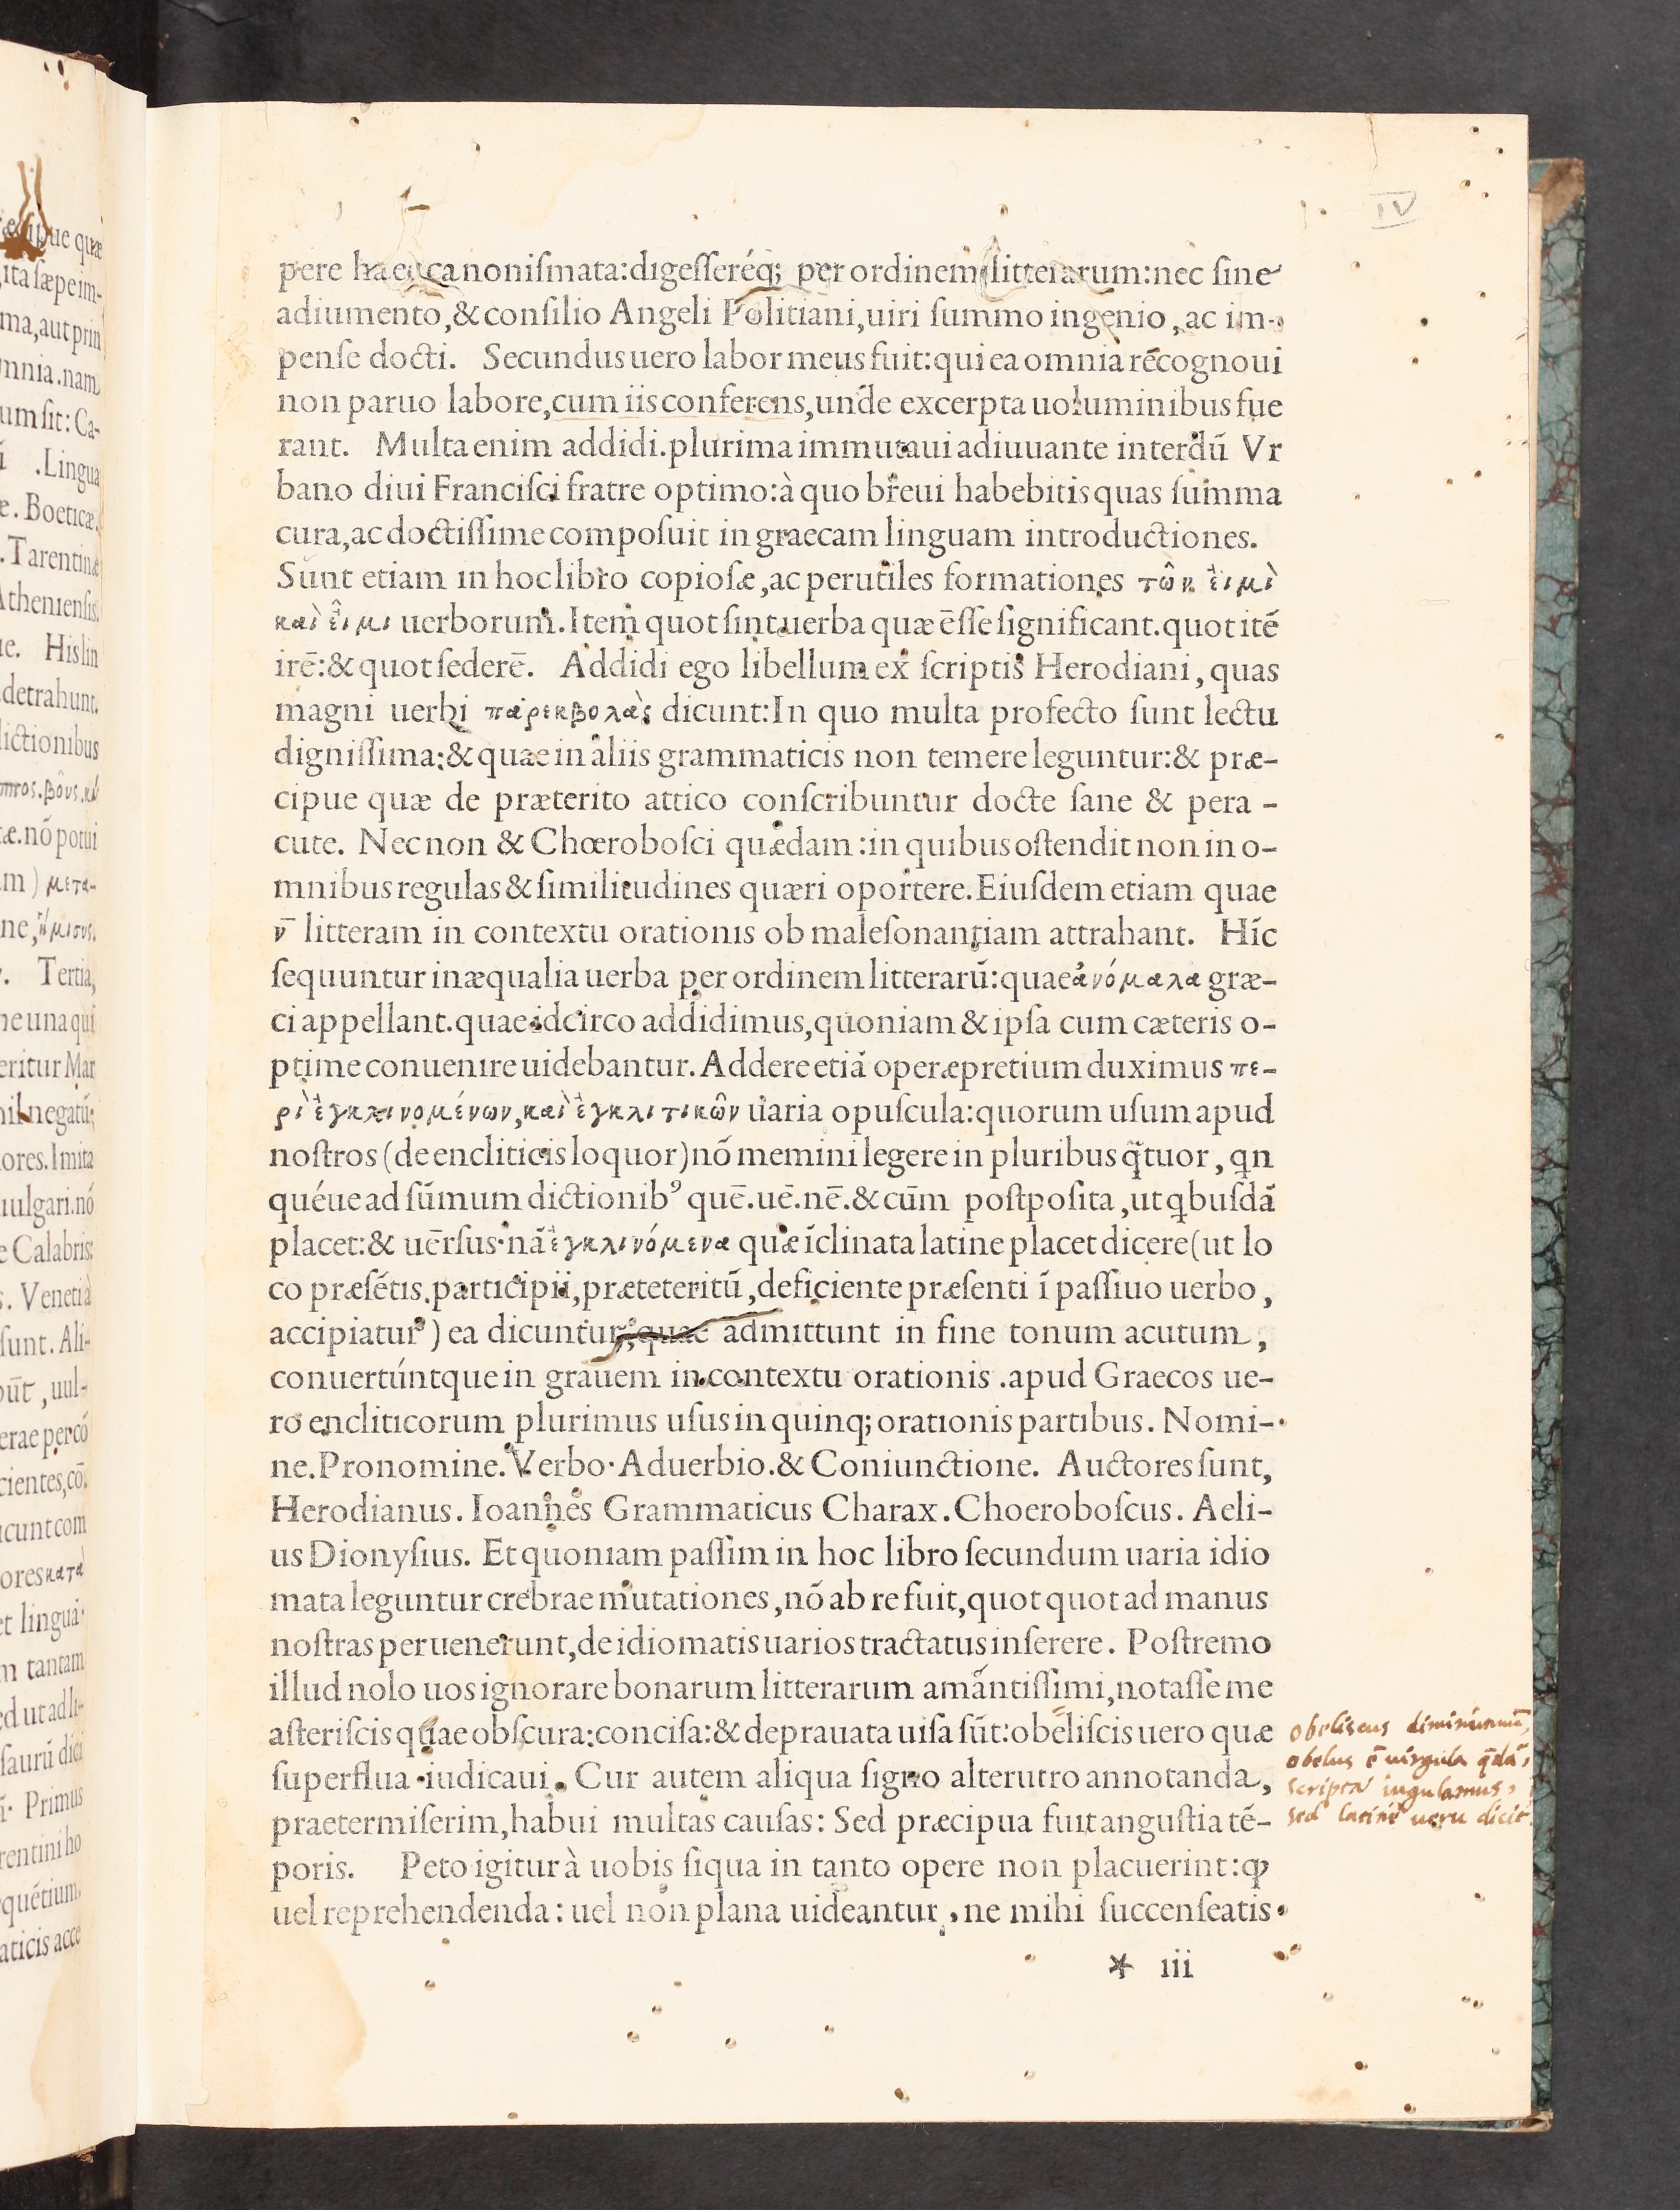 IV
pere haec canoniſmata:digeſſeréq; per ordinem litterarum:nec ſine
adiumento,& conſilio Angeli Politiani,uiri ſummo ingenio,ac im-
penſe docti. Secundus uero labor meus fuit:qui ea omnia recognoui
non paruo labore,cum iis conferens,unde excerpta uoluminibus fue
rant. Multa enim addidi.plurima immutaui adiuuante interdū Vr
bano diui Franciſci fratre optimo:à quo breui habebitis quas ſumma
cura,ac doctiſſime compoſuit in graecam linguam introductiones.
Sunt etiam in hoc libro copioſæ,ac perutiles formationes τῶν εἰμὶ
καὶ εἶμι uerborum.Item quot ſint uerba quæ ēſſe ſignificant.quot itē
irē:& quot ſederē. Addidi ego libellum ex ſcriptis Herodiani,quas
magni uerbi παρεκβολὰς dicunt:In quo multa profecto ſunt lectu
digniſſima:& quae in aliis grammaticis non temere leguntur:& præ-
cipue quæ de præterito attico conſcribuntur docte ſane & pera-
cute. Nec non & Chœroboſci quædam:in quibus oſtendit non in o-
mnibus regulas & ſimilitudines quæri oportere.Eiuſdem etiam quae
ν̄ litteram in contextu orationis ob maleſonantiam attrahant. Híc
ſequuntur inæqualia uerba per ordinem litterarū:quae ἀνόμαλα græ-
ci appellant.quae idcirco addidimus,quoniam & ipſa cum cæteris o-
ptime conuenire uidebantur.Addere etiā operæpretium duximus πε-
ρὶ ἐγκλινομένων,καὶ ἐγκλιτικῶν uaria opuſcula:quorum uſum apud
noſtros (de encliticis loquor)nō memini legere in pluribus q̃tuor,qn
quéue ad ſūmum dictionibꝰ quē.uē.nē.& cūm poſtpoſita,ut qbuſdā
placet:& uērſus.nā ἐγκλινόμενα quæ īclinata latine placet dicere(ut lo
co præſētis.participii,præteteritū,deficiente præſenti ī paſſiuo uerbo,
accipiatur) ea dicuntur,quae admittunt in fine tonum acutum,
conuertúntque in grauem in contextu orationis.apud Graecos ue-
ro encliticorum plurimus uſus in quinq; orationis partibus. Nomi-
ne.Pronomine.Verbo.Aduerbio.& Coniunctione. Auctores ſunt,
Herodianus. Ioannes Grammaticus Charax. Choeroboſcus. Aeli-
us Dionyſius. Et quoniam paſſim in hoc libro ſecundum uaria idio
mata leguntur crebrae mutationes,nō ab re fuit,quot quot ad manus
noſtras peruenerunt,de idiomatis uarios tractatus inſerere. Poſtremo
illud nolo uos ignorare bonarum litterarum amantiſſimi,notaſſe me
aſteriſcis quae obſcura:conciſa:& deprauata uiſa ſūt:obeliſcis uero quæ
ſuperflua iudicaui. Cur autem aliqua ſigno alterutro annotanda,
praetermiſerim,habui multas cauſas: Sed præcipua fuit anguſtia tē-
poris. Peto igitur à uobis ſiqua in tanto opere non placuerint:ꝙ
uel reprehendenda: uel non plana uideantur,ne mihi ſuccenſeatis.
* iii
obeliscus diminutiuū,
obelus ē uirgula q̄dā,
scripta iugulamus,
sed latine ueru dicit